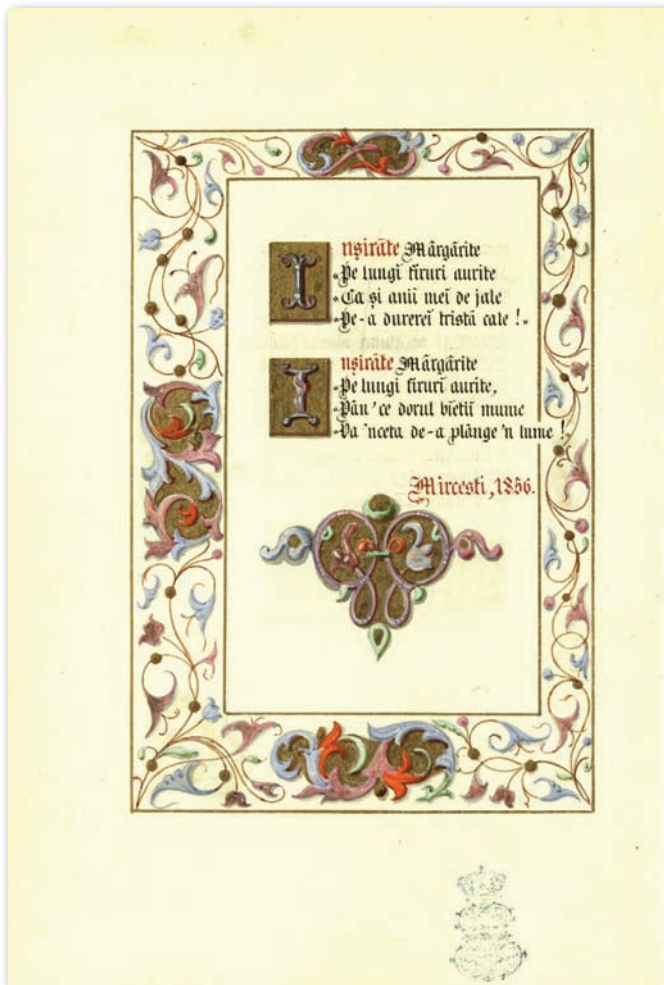 Inșirăte Mărgărite
Pe lungĭ firuri aurite
Ca și aniĭ meĭ de jale
Pe-a durereĭ tristă cale !
Inșirăte Mărgărite
Pe lungi firuri aurite,
Pân'ce dorul bietiĭ mume
Va 'nceta de-a plânge 'n lume !
Mircesti, 1856.